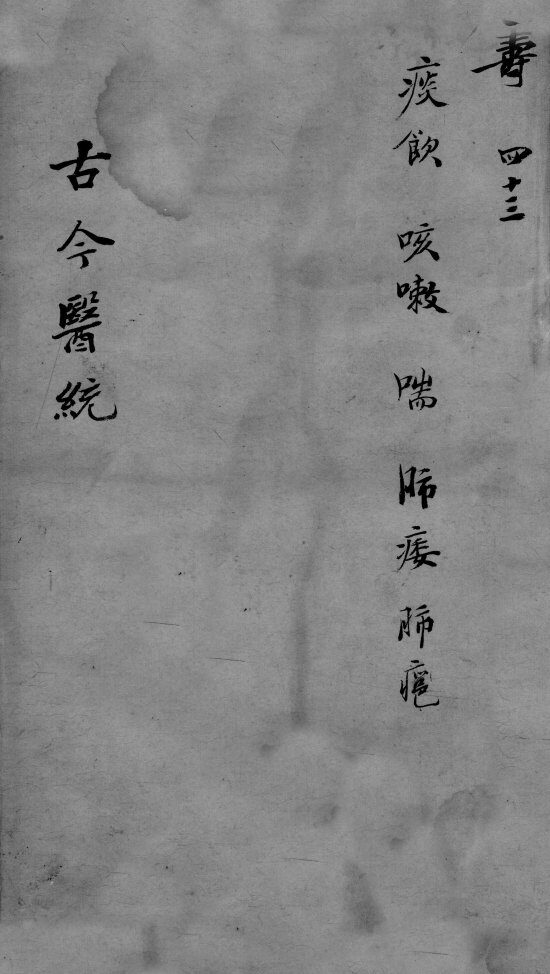 壽 四十三
痰飲 咳嗽 喘 肺痿 肺癰
古今醫統